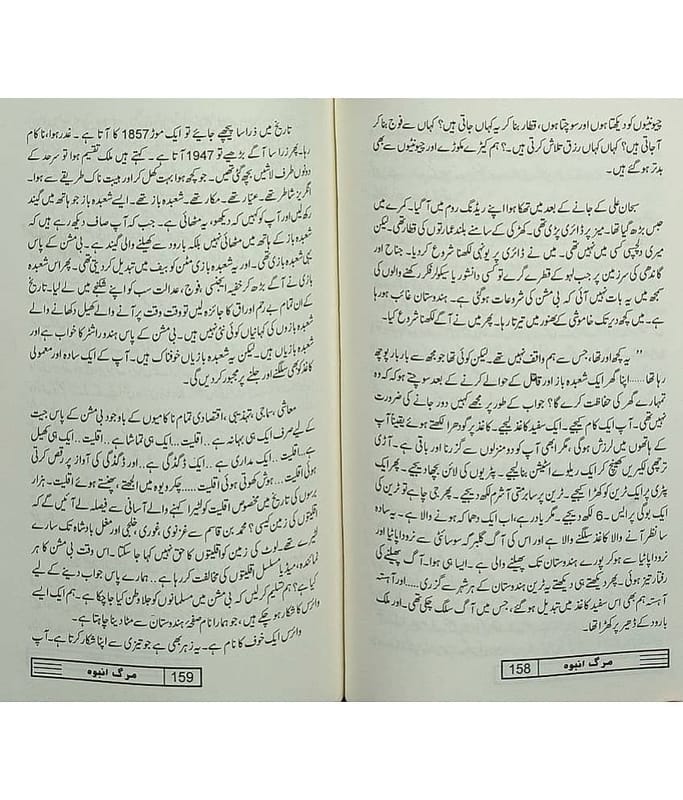 چیونٹیوں کو دیکھتا ہوں اور سوچتا ہوں، قطار بنا کر یہ کہاں جاتی ہیں؟ کہاں سے فوج بنا کر
آ جاتی ہیں؟ کہاں کہاں رزق تلاش کرتی ہیں۔۔؟ ہم کیڑے مکوڑے اور چیونٹیوں سے بھی
بدتر ہو گئے ہیں۔
سبحان علی کے جانے کے بعد میں تھکا ہوا اپنے ریڈنگ روم میں آ گیا۔ کمرے میں
حبس بڑھ گیا تھا۔ میز پر ڈائری پڑی تھی۔ کھڑکی کے سامنے بلند عمارتوں کی قطار تھی۔ لیکن
میری دلچسپی کسی میں نہیں تھی۔ میں نے ڈائری پر یونہی لکھنا شروع کر دیا۔ جناح اور
گاندھی کی سرزمین پر جب لہو کے قطرے گرے تو کسی دانشور یا سیکولر فکر رکھنے والوں کی
سمجھ میں یہ بات نہیں آئی کہ بی مشن کی شروعات ہو گئی ہے۔ ہندوستان غائب ہو رہا
ہے۔ میں کچھ دیر تک خاموشی کے بھنور میں تیرتا رہا۔ پھر میں نے آگے لکھنا شروع کیا۔
’’ یہ کچھ اور تھا، جس سے ہم واقف نہیں تھے۔ لیکن کوئی تھا جو مجھ سے بار بار پوچھ
رہا تھا.....اپنا گھر ایک شعبدہ باز اور قاتل کے حوالے کرنے کے بعد سوچتے ہو کہ وہ
تمہارے گھر کی حفاظت کرے گا؟ جواب کے طور پر مجھے کہیں دور جانے کی ضرورت
نہیں تھی۔ آپ ایک کام کیجیے۔ ایک سفید کاغذ لیجیے۔ کاغذ پر گودھرا لکھتے ہوئے یقیناً آپ
کے ہاتھوں میں لرزش ہوگی، مگر ابھی آپ کو دو منزلوں سے گزرنا اور باقی ہے۔ آڑی
ترچھی لکیریں کھینچ کر ایک ریلوے اسٹیشن بنا لیجیے۔ پٹریوں کی لائن بچھا دیجیے۔ پھر ایک
پٹری پر ایک ٹرین کو کھڑا کیجیے۔ ٹرین پر سابرمتی آشرم لکھ دیجیے۔ پھر جی چاہے تو ٹرین کی
ایک بوگی پر ایس۔6 لکھ دیجیے۔ مگر یاد رہے، اب ایک دھماکہ ہونے والا ہے۔ یہ سادہ
سا نظر آنے والا کاغذ سلگنے والا ہے اور اس کی آگ گلبرگہ سوسائٹی سے نرودا پاٹیا اور
نرودا پاٹیا سے ہو کر پورے ہندوستان تک پھیلنے والی ہے۔ ایسا ہی ہوا۔ آگ پھیلنے کی
رفتار تیز ہوئی۔ پھر دیکھتے ہی دیکھتے یہ ٹرین ہندوستان کے ہر شہر سے گزری.....اور آہستہ
آہستہ ہم بھی اس سفید کاغذ میں تبدیل ہو گئے، جس میں آگ سلگ چکی تھی۔ اور ملک
بارود کے ڈھیر پر کھڑا تھا۔
مرگ انبوہ 158
تاریخ میں ذرا سا پیچھے جائیے تو ایک موڑ 1857 کا آتا ہے۔ غدر ہوا، ناکام
رہا۔ پھر ذرا سا آگے بڑھیے تو 1947 آتا ہے۔ کہتے ہیں ملک تقسیم ہوا تو سرحد کے
دونوں طرف لاشیں بچھ گئی تھیں۔ جو کچھ ہوا بہت کھل کر اور ہیبت ناک طریقے سے ہوا۔
انگریز شاطر تھے۔ عیار تھے۔ مکار تھے۔ شعبدہ باز تھے۔ ایسے شعبدہ باز جو ہاتھ میں گیند
رکھ لیں اور آپ کو کہیں کہ دیکھو، یہ مٹھائی ہے۔ جب کہ آپ صاف دیکھ رہے ہیں کہ
شعبدہ باز کے ہاتھ میں مٹھائی نہیں بلکہ بارود سے کھیلنے والی گیند ہے۔ بی مشن کے پاس
یہی شعبدہ بازی تھی۔ اور یہ شعبدہ بازی مٹن کو بیف میں تبدیل کر دیتی تھی۔ پھر اس شعبدہ
بازی نے آگے بڑھ کر خفیہ ایجنسی، فوج، عدالت سب کو اپنے شکنجے میں لے لیا۔ تاریخ
کے ان تمام بے رحم اوراق کا جائزہ لیں تو وقت وقت پر آنے والے کھیل دکھانے والے
شعبدہ بازوں کی کہانیاں کوئی نئی نہیں ہیں۔ بی مشن کے پاس ہندو راشٹر کا خواب ہے اور
شعبدہ بازیاں ہیں۔ لیکن یہ شعبدہ بازیاں خوفناک ہیں۔ آپ کے ایک سادہ اور معمولی
کاغذ کو بھی سلگنے اور جلنے پر مجبور کر دیں گی۔
معاشی، سماجی، تہذیبی، اقتصادی تمام ناکامیوں کے باوجود بی مشن کے پاس جیت
کے لیے صرف ایک ہی بہانہ ہے۔۔ اقلیت...ایک ہی تماشا ہے۔۔ اقلیت۔ ایک ہی کھیل
ہے۔۔اقلیت۔ ایک مداری ہے۔۔ ایک ڈگڈگی ہے۔۔ اور ڈگڈگی کی آواز پر رقص کرتی
ہوئی اقلیت... ہوش کھوتی ہوئی اقلیت... چکرویوہ میں الجھتے، پھنستے ہوئے اقلیت۔ ہزار
برسوں کی تاریخ میں مخصوص اقلیت کو لٹیرا کہنے والے آسانی سے فیصلہ لے آئیں گے کہ
اقلیتوں کی زمین کیسی؟ محمد بن قاسم سے غزنوی، غوری، خلجی اور مغل بادشاہ تک سارے
لٹیرے تھے۔ لوٹ کی زمین کو اقلیتوں کا حق نہیں کہا جا سکتا۔ اس وقت بی مشن کا ہر
نمائندہ، میڈیا مسلسل اقلیتوں کی مخالفت کر رہا ہے... ہمارے پاس جواب دینے کے لیے
کیا ہے؟ ہم تسلیم کر لیں کہ بی مشن میں مسلمانوں کو جلا وطن کیا جا چکا ہے۔ ہم ایک ایسے
وائرس کا شکار ہو چکے ہیں، جو ہمارا نام صفحۂ ہندوستان سے مٹا دینا چاہتا ہے۔
وائرس ایک خوف کا نام ہے۔ یہ زہر بھی ہے جو تیزی سے اپنا شکار کرتا ہے۔ آپ
مرگ انبوہ 159